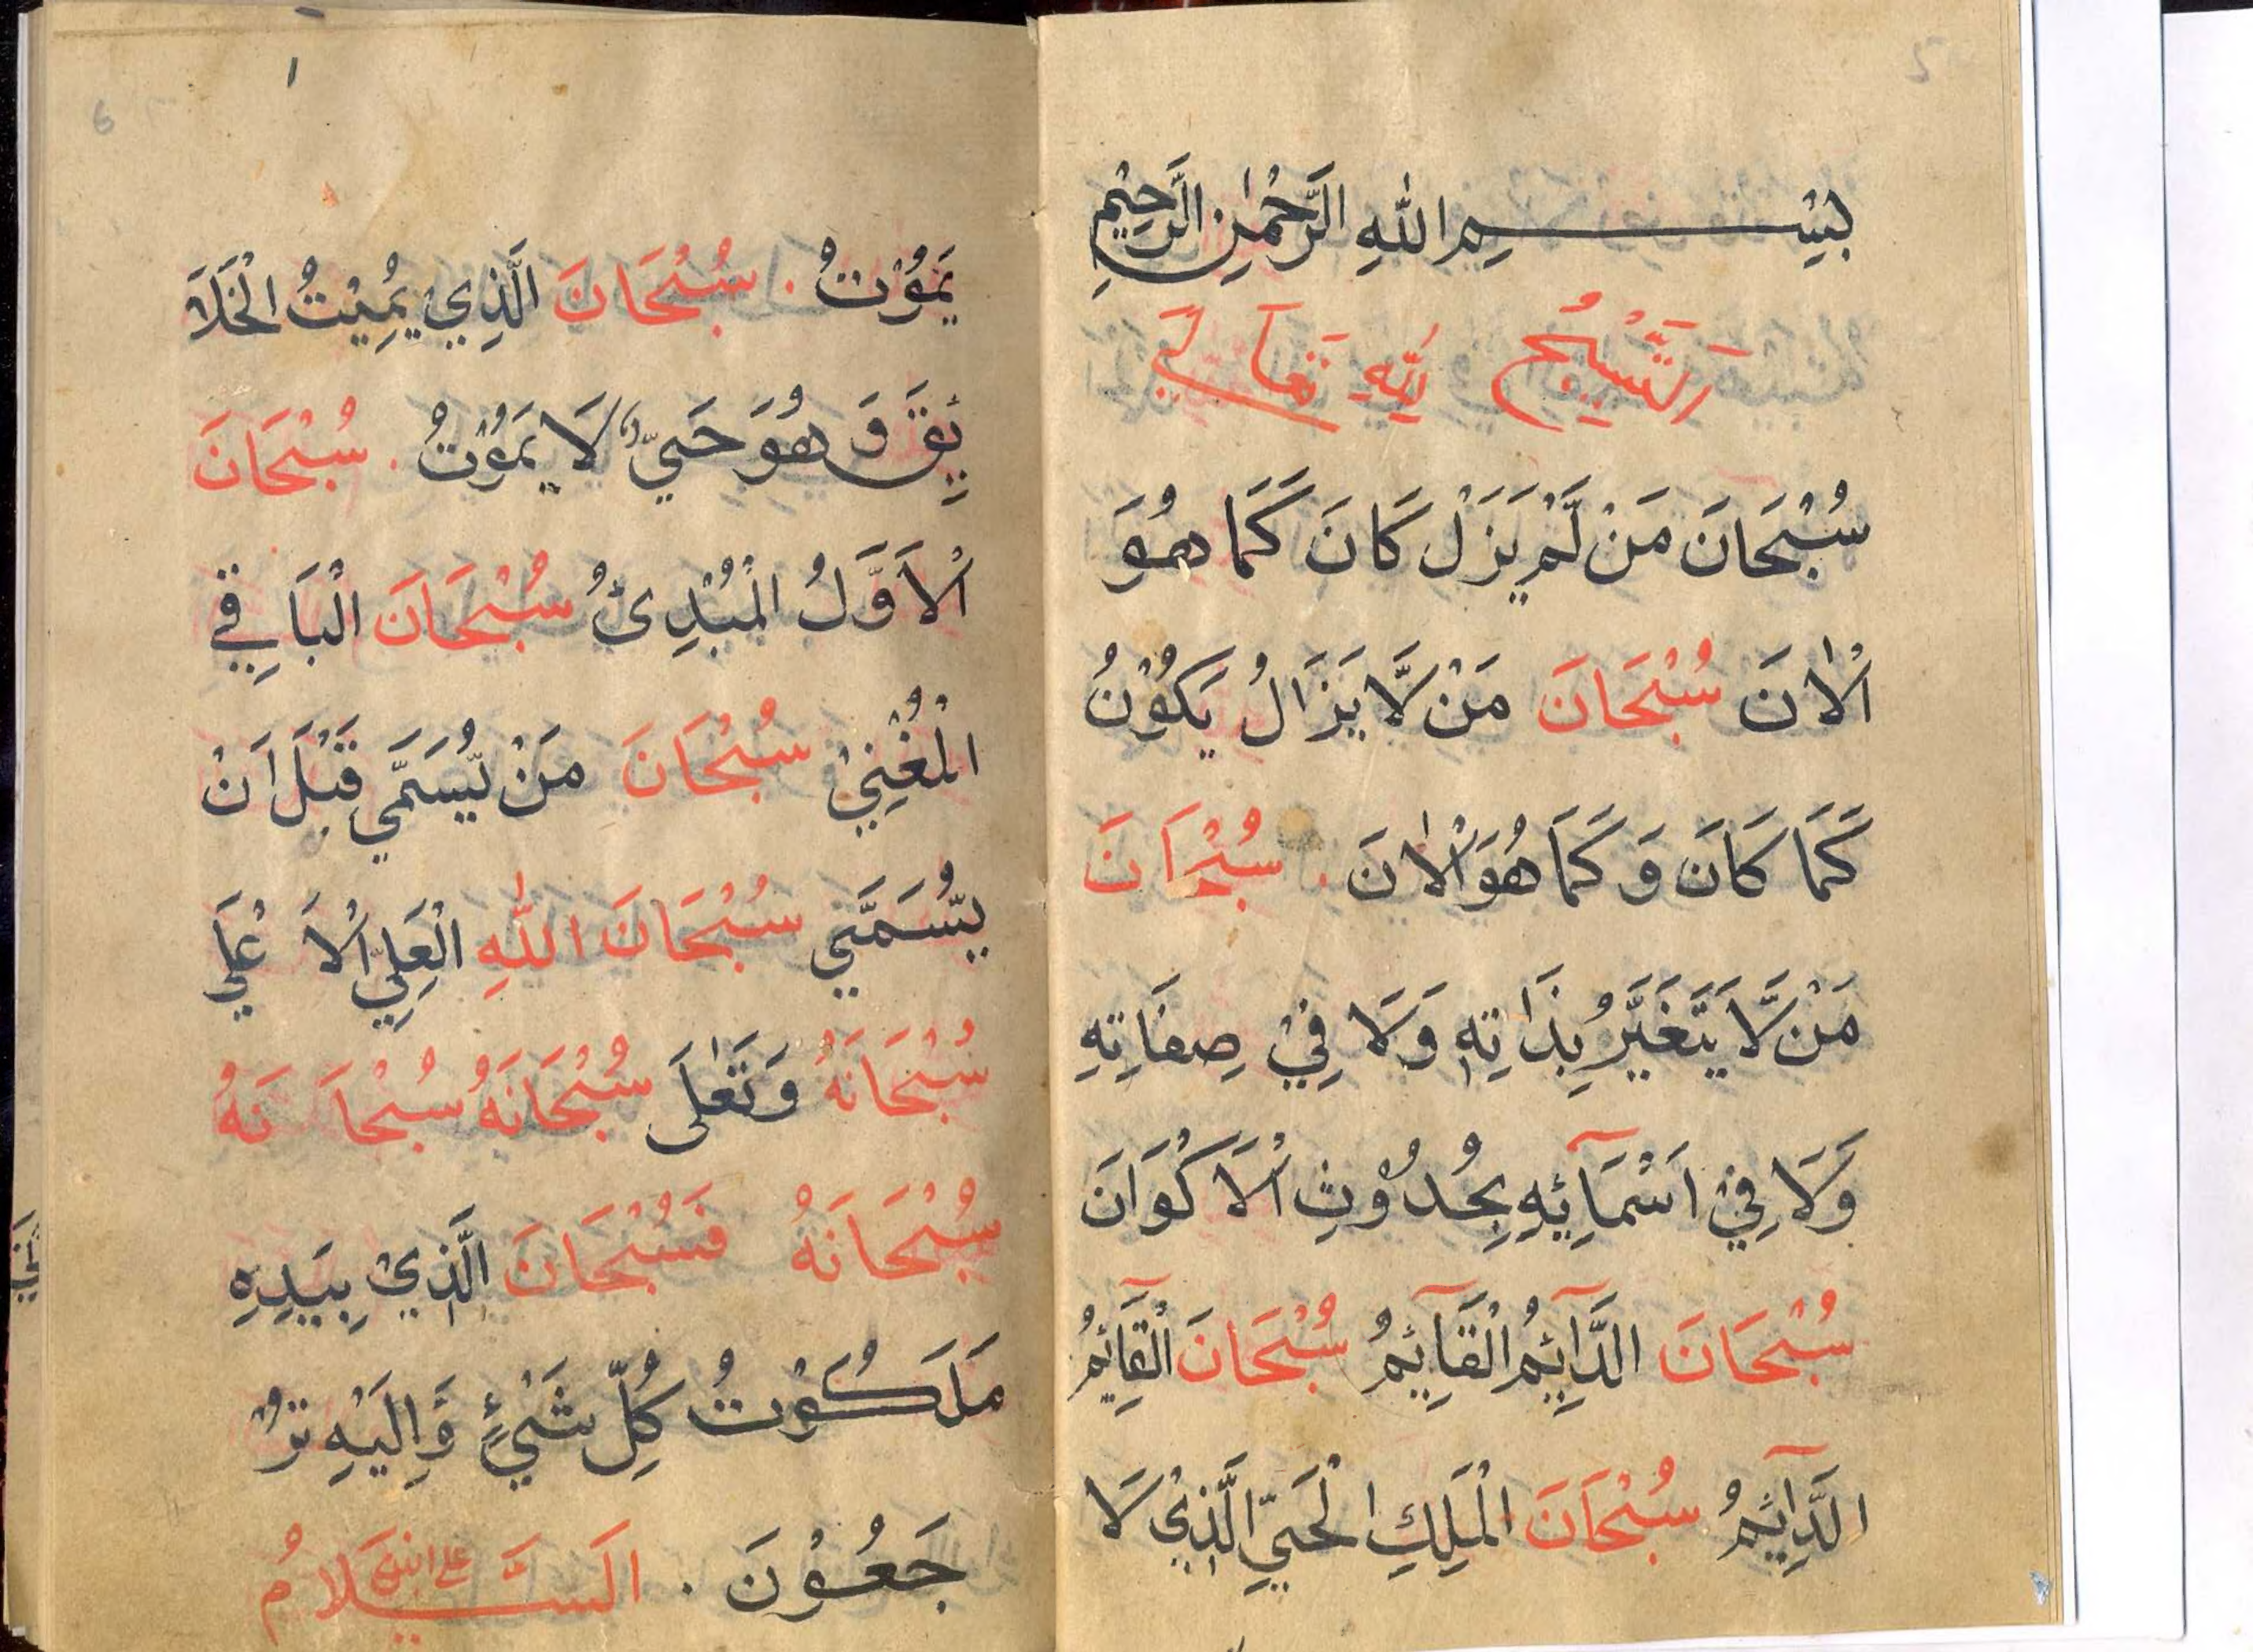 بِسْمِ اللهِ الرَّحْمٰنِ الرَّحِيْمِ
اَلتَّسْبِيْحُ لِلّٰهِ تَعَالٰي
سُبْحَانَ مَنْ لَّمْ يَزَلْ كَانَ كَمَا هُوَ
اْلاٰنَ سُبْحَانَ مَنْ لَّا يَزَالُ يَكُوْنُ
كَمَا كَانَ وَ كَمَا هُوَ اْلاٰنَ . سُبْحَانَ
مَنْ لَّا يَتَغَيَّرُ بِذَاتِهٖ وَلَا فِيْ صِفَاتِهٖ
وَلَا فِيْ اَسْمَآئِهٖ بِحُدُوْثِ اْلَاكْوَانَ
سُبْحَانَ الدَّآئِمُ الْقَآئِمُ سُبْحَانَ الْقَآئِمُ
الدَّآئِمُ سُبْحَانَ الْمَلِكِ الْحَيِّ الَّذِيْ لَا
يَمُوْتُ . سُبْحَانَ الَّذِيْ يُمِيْتُ الْخَلَا
ئِقَ وَ هُوَ حَيٌّ لَا يَمُوْتُ . سُبْحَانَ
اْلَاوَّلُ الْمُبْدِئُ سُبْحَانَ الْبَاقِيْ
الْمُغْنِيْ سُبْحَانَ مَنْ يُّسَمّٰي قَبْلَ اَنْ
يُّسَمّٰي سُبْحَانَ اللهِ الْعَلِيِّ اْلَا عْلٰي
سُبْحَانَهُ وَتَعٰلٰى سُبْحَانَهُ سُبْحَا نَهُ
سُبْحَانَهُ فَسُبْحَانَ الَّذِيْ بِيَدِهٖ
مَلَكُوْتُ كُلِّ شَيْءٍ وَّاِلَيْهِ تُرْ
جَعُوْنَ . اَلسَّلَامُ